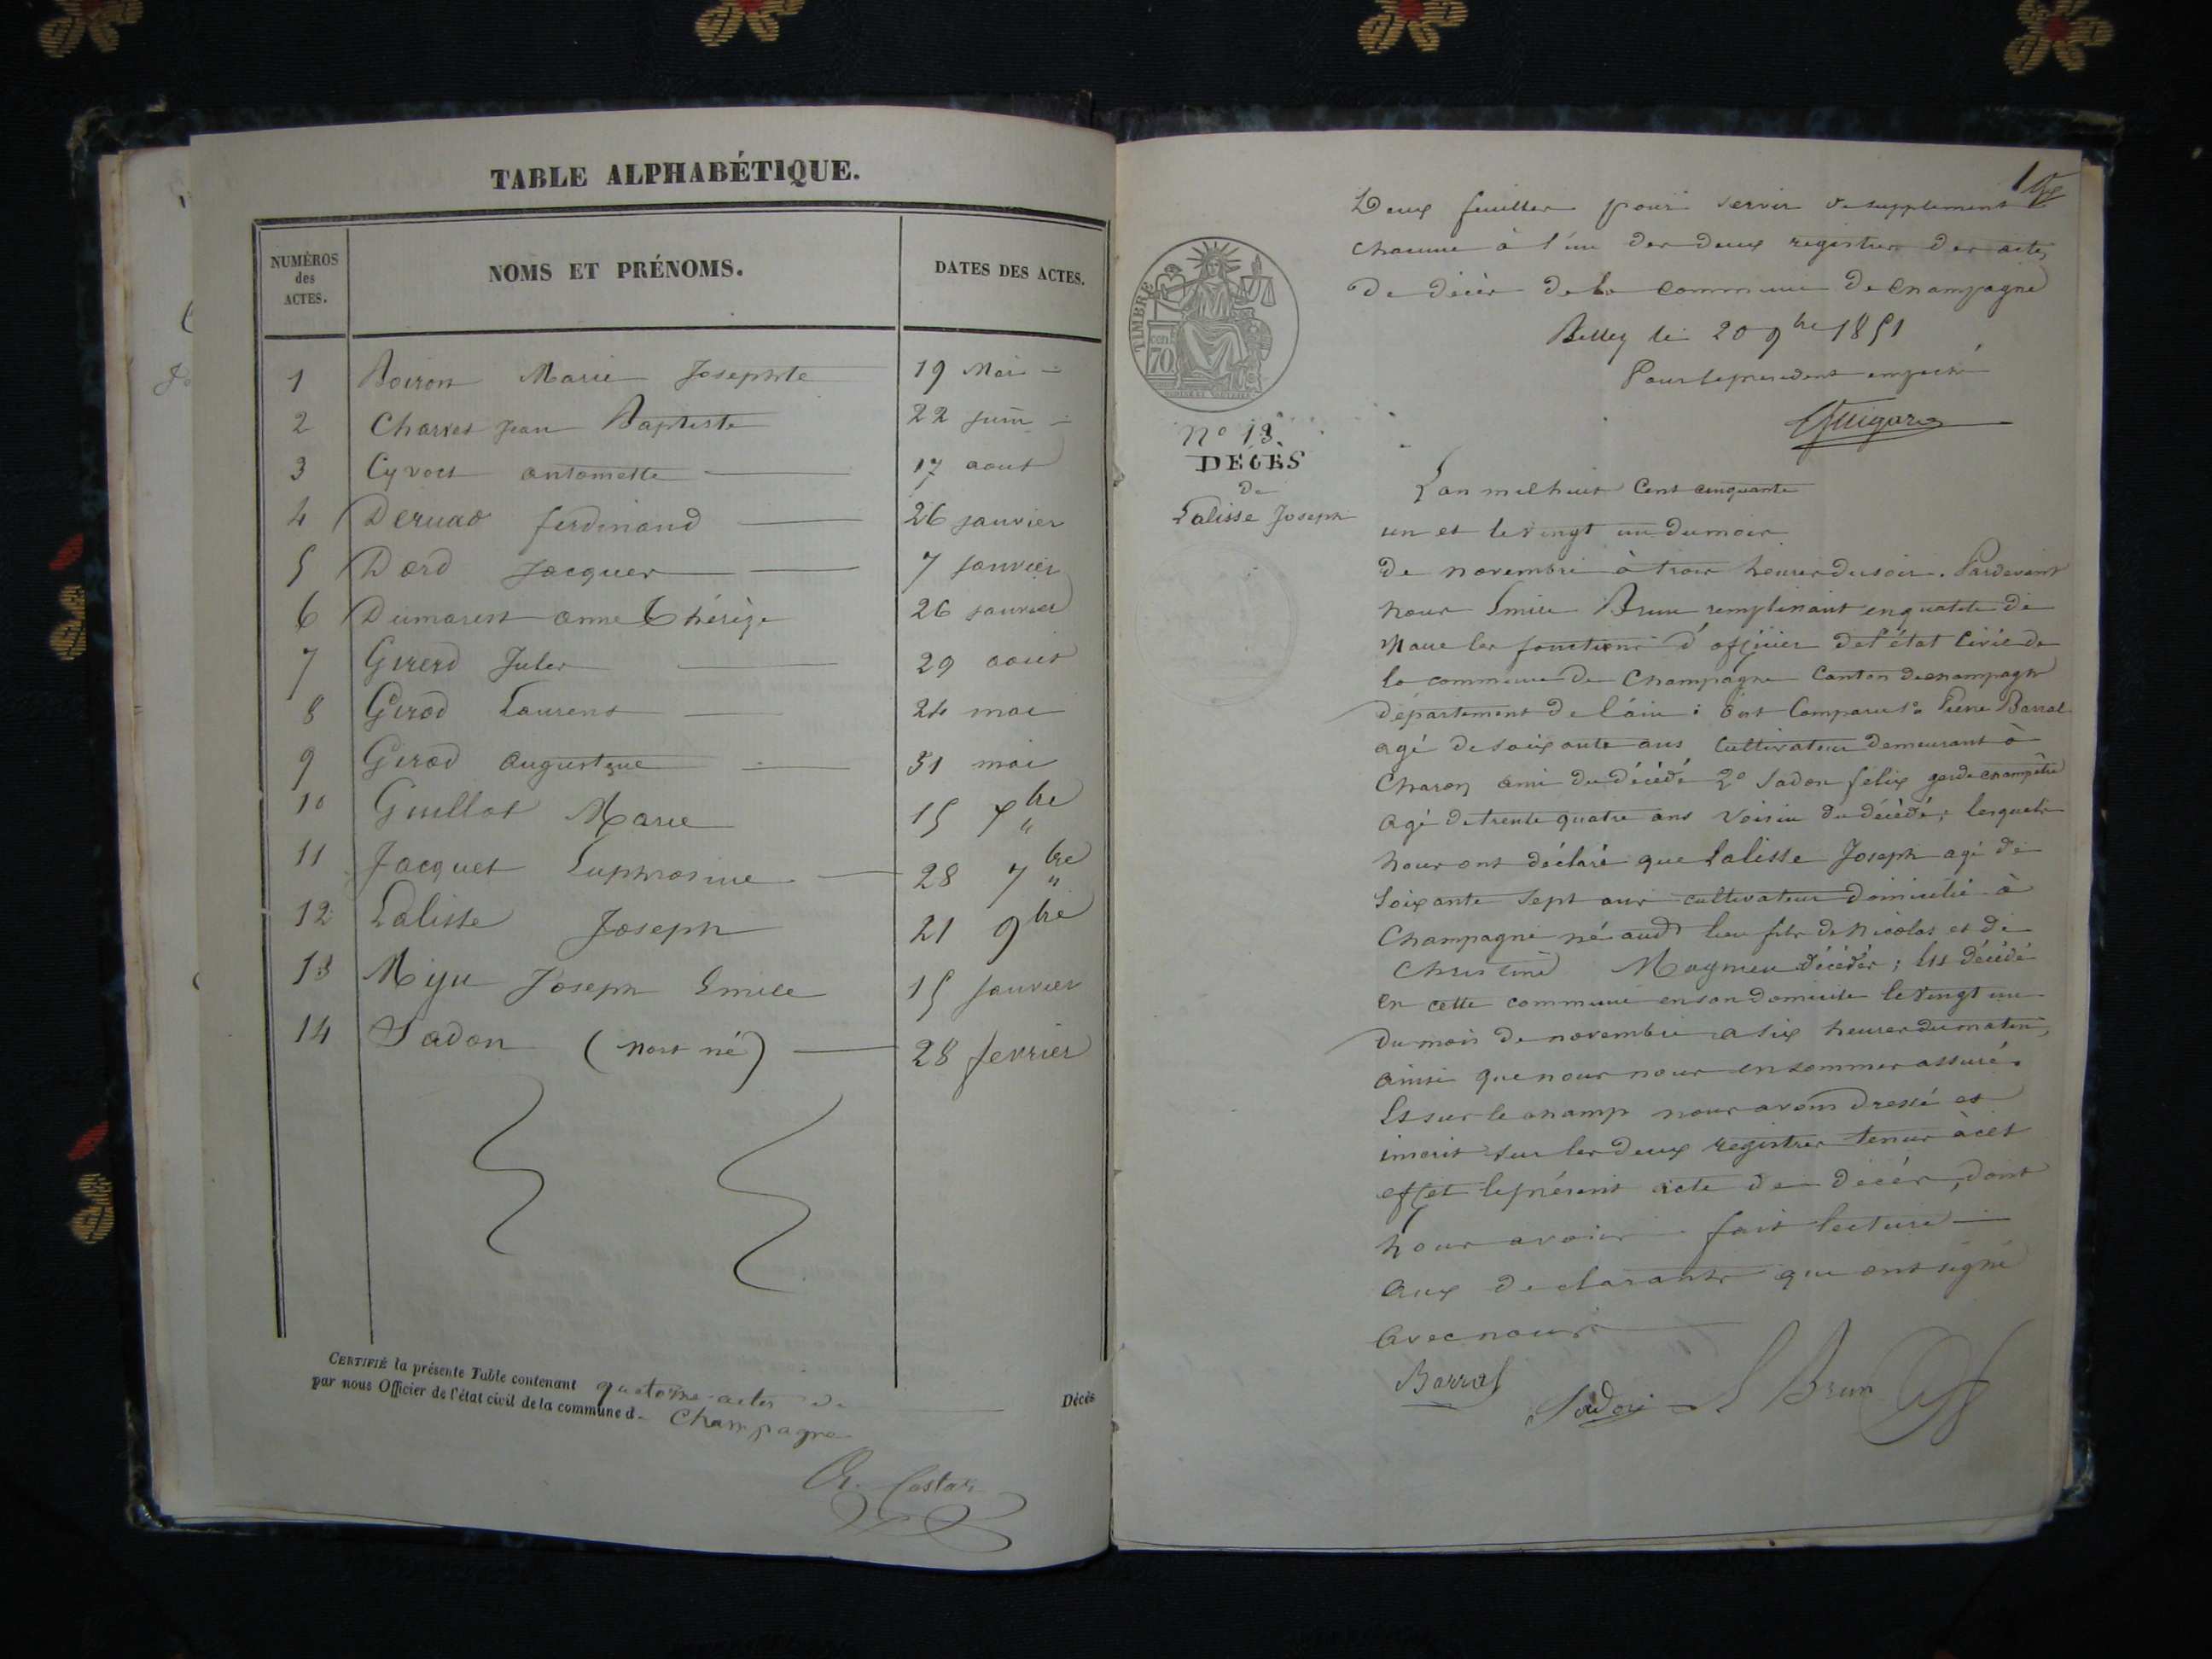 TABLE ALPHABÉTIQUE.
NUMÉROS des ACTES. NOMS ET PRÉNOMS. DATES DES ACTES.
1 Boiron Marie Josephte 19 Mai
2 Charvet Jean Baptiste 22 juin
3 Cyvoct antoinette 17 aout
4 Deruad ferdinand 26 janvier
5 Dord Jacques 7 janvier
6 Dumarest anne Thérèze 26 janvier
7 Girerd Jules 29 aout
8 Girod Laurent 24 mai
9 Girod augustine 31 mai
10 Guillot Marie 15 7bre
11 Jacquet Euphrosine 28 7bre
12 Lalisse Joseph 21 9bre
13 Joseph Emile 15 janvier
14 Sadon (mort né) 28 fevrier
CERTIFIÉ la présente Table contenant quatorze actes de Décès
par nous Officier de l'état civil de la commune de Champagne
1
Deux feuilles pour servir de supplement
chacune à l'un des deux registres des actes
de décès de la commune de Champagne
Belley le 20 9bre 1851
Pour le president empeché
TIMBRE
70
No 13.
DÉCÈS
de
Lalisse Joseph
L'an mil huit Cent cinquante
un et le vingt un du mois
de novembre à trois heures du soir. Pardevant
nous Emile Brun remplissant en qualité de
Maire les fonctions d'officier de l'état civil de
la commune de Champagne Canton de champagne
département de l'ain : Ont Comparu 1o Pierre Barral
agé de soixante ans Cultivateur demeurant à
ami du décédé 2o Sadon félix garde champêtre
agé de trente quatre ans voisin du décédé ; lesquels
nous ont déclaré que Lalisse Joseph agé de
soixante sept ans cultivateur domicilié à
Champagne né audt lieu fils de Nicolas et de
Christine décédés ; Est décédé
en cette commune en son domicile le vingt un
du mois de novembre a six heures du matin,
ainsi que nous nous en sommes assuré.
Et sur le champ nous avons dressé et
inscrit sur les deux registres tenus à cet
effet le présent acte de décès, dont
nous avons fait lecture
aux declarants qui ont signé
avec nous.
Barral Sadon E Brun